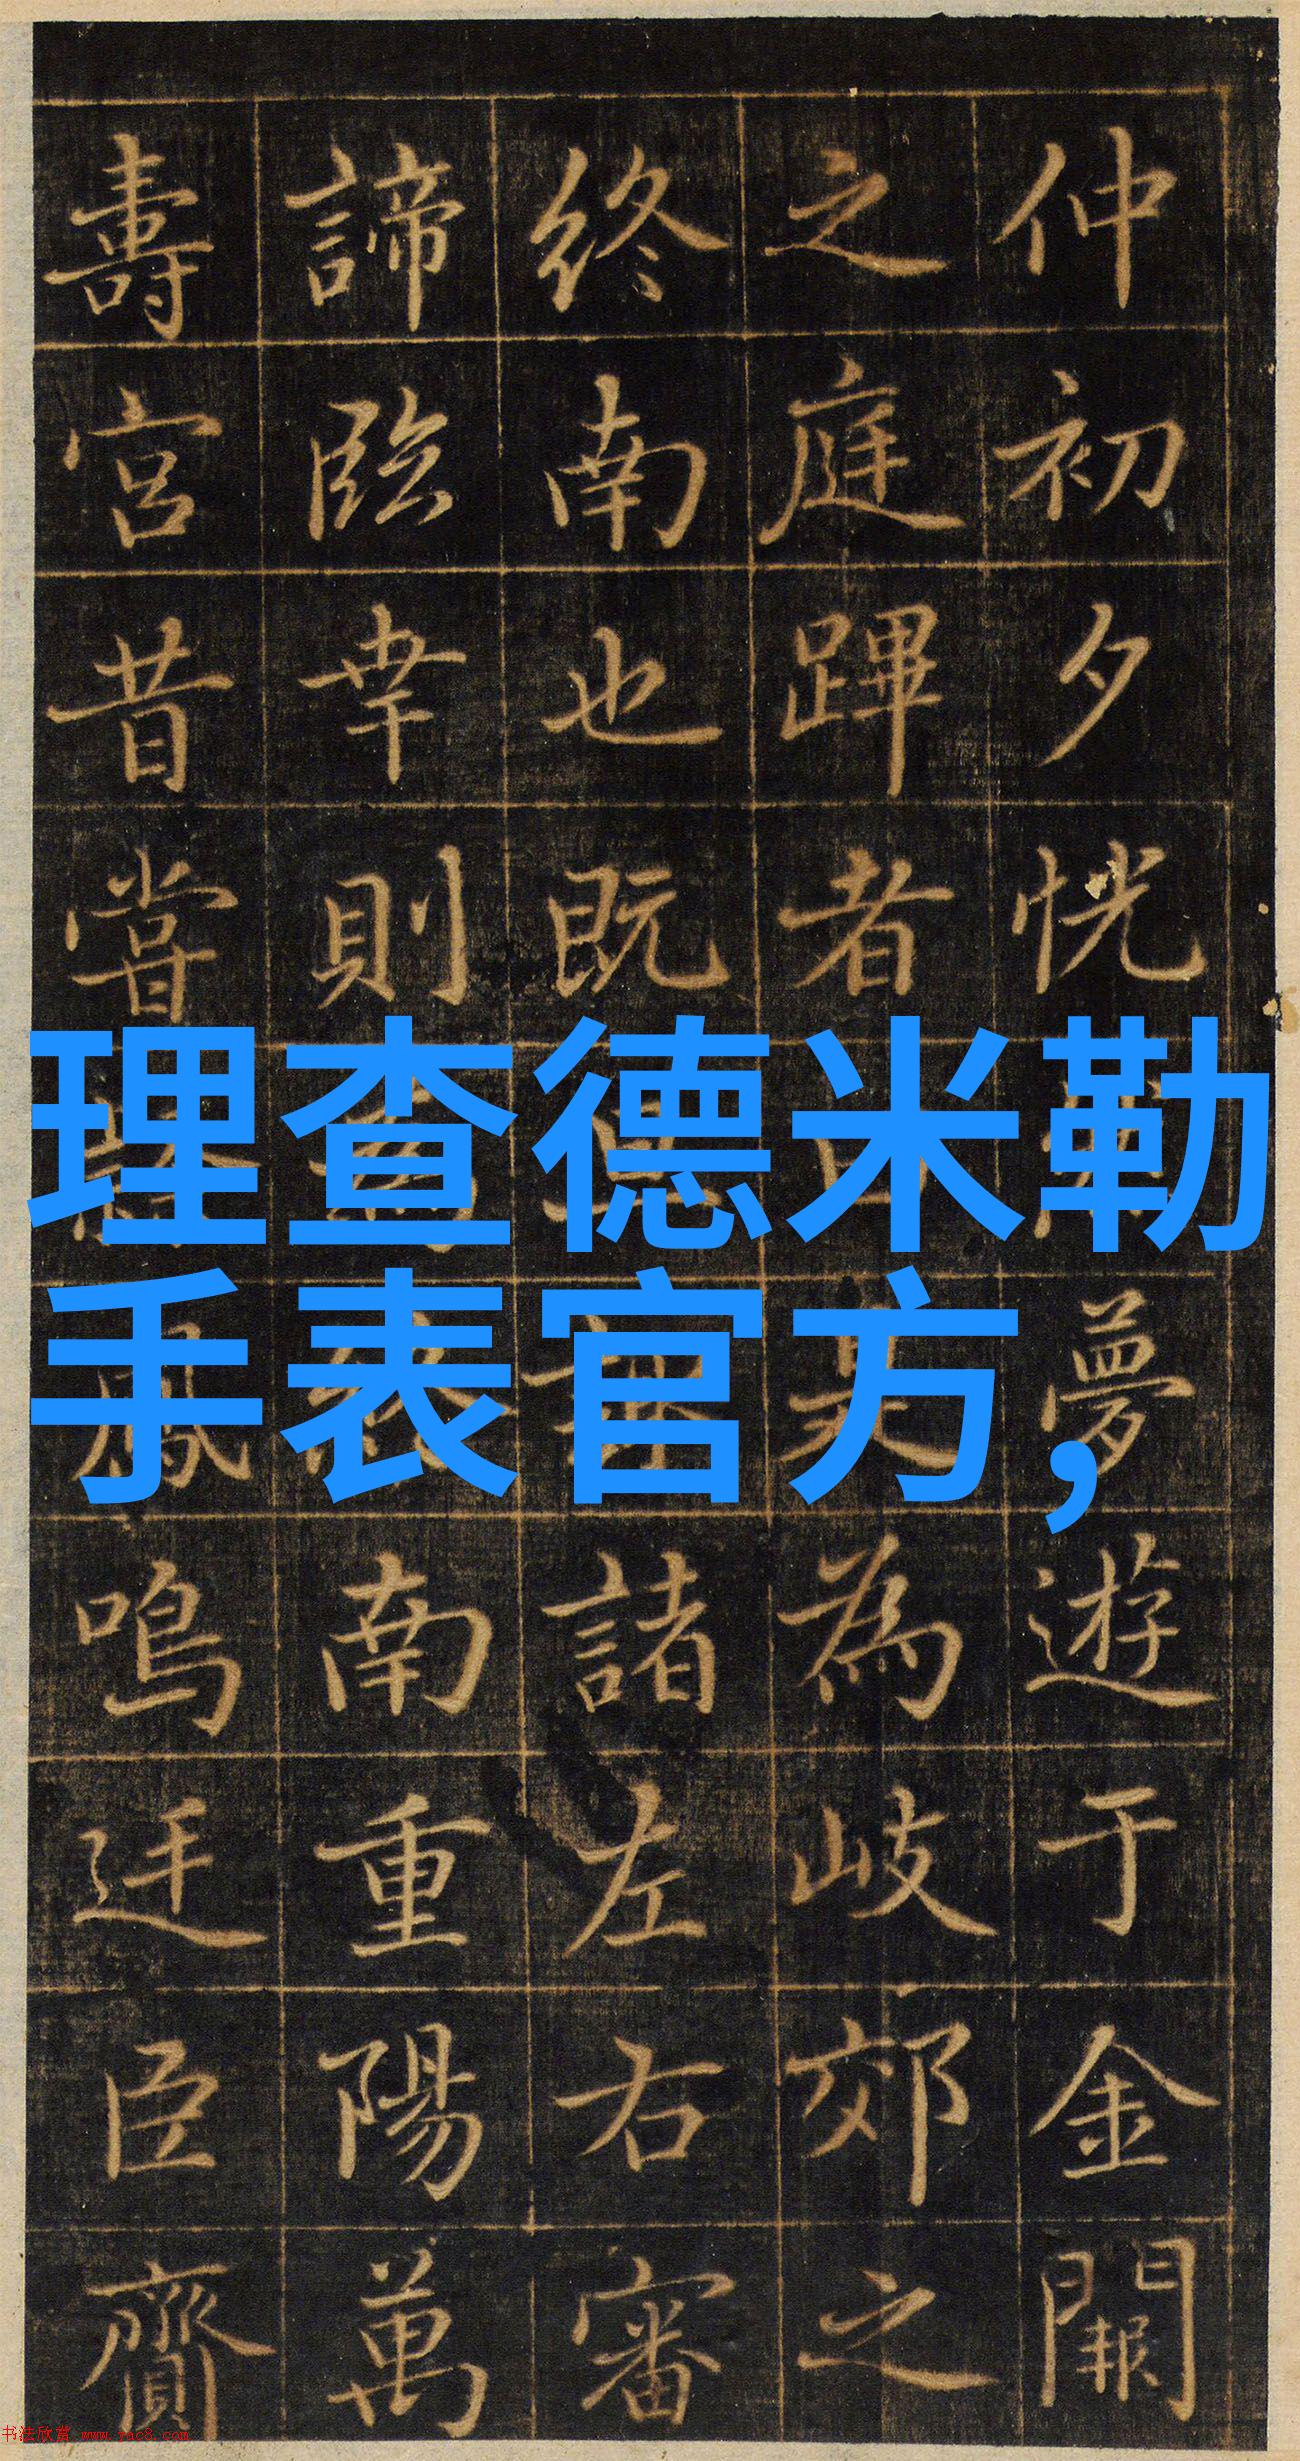 仲初夕恍夢遊于金闕
之庭蹕者為岐郊之
終南也既諸左右審
諦臨幸則南重陽萬
壽宮昔嘗鳳鳴迋臣齎
理查德米勒
手表官方，
书法欣赏 www.yac8.com